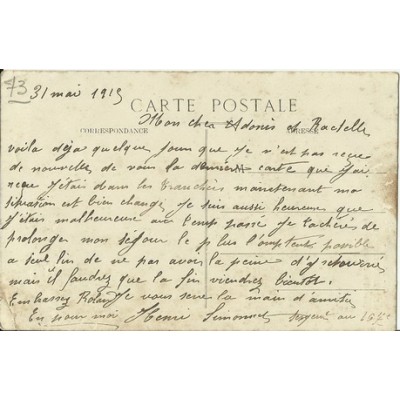 73
31 mai 1915
CARTE POSTALE
CORRESPONDANCE
ADRESSE
Mon cher Adonis et Rachelle
voila déja quelque jour que je n'est pas recue
de nouvelles de vous la dernière carte que j'ai
recue j'étais dans les tranchées maintenant ma
situation est bien change je suis aussi heureuse que
j'étais malheureuse au temp passé je tacherés de
prolonger mon séjour le plus lomptent possible
a seul fin de ne pas avoir la peine d'y
mais il faudrez que la fin viendrez bientot.
Embrassez Roland je vous serre la main d'amitié
En pour moi Henri Simonnet au